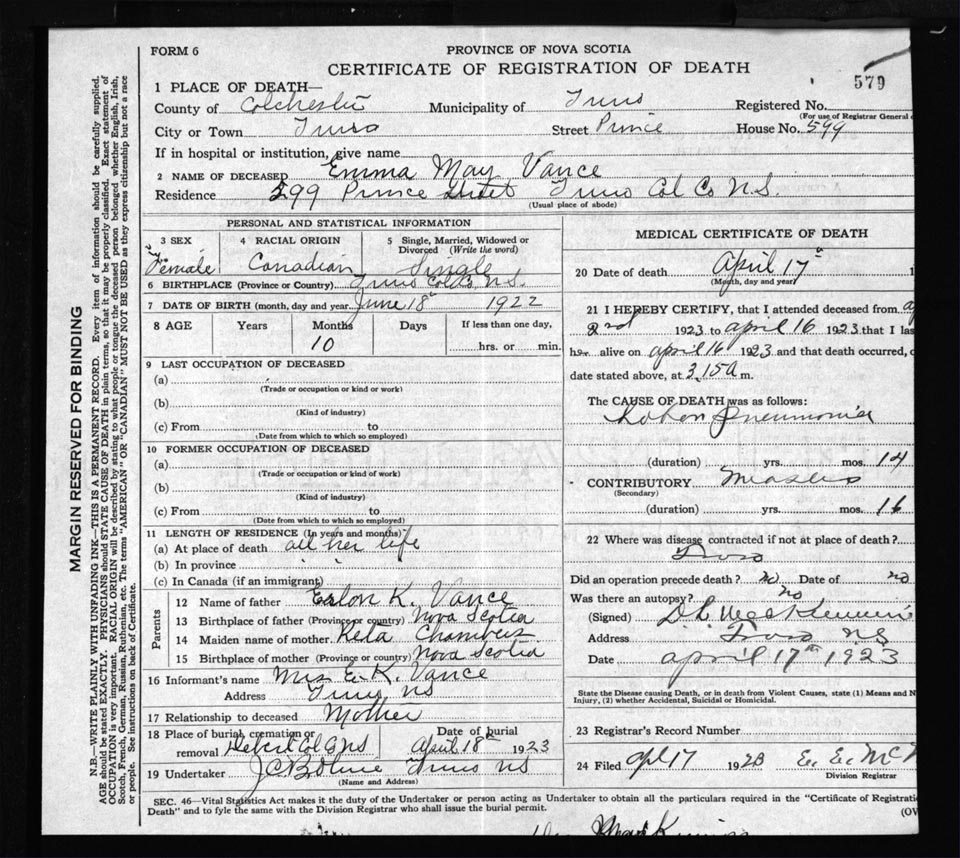 FORM 6
PROVINCE OF NOVA SCOTIA
CERTIFICATE OF REGISTRATION OF DEATH
579
1 PLACE OF DEATH—
County of Colchester Municipality of Truro Registered No.
(For use of Registrar General
City or Town Truro Street Prince House No. 599
If in hospital or institution, give name
2 NAME OF DECEASED Emma May Vance
Residence 599 Prince Street Truro Col Co N.S.
(Usual place of abode)
PERSONAL AND STATISTICAL INFORMATION
3 SEX 4 RACIAL ORIGIN 5 Single, Married, Widowed or
Divorced (Write the word)
Female Canadian Single
6 BIRTHPLACE (Province or Country) Truro Col Co N.S.
7 DATE OF BIRTH (month, day and year) June 18th 1922
8 AGE Years Months Days If less than one day,
10 hrs. or min.
9 LAST OCCUPATION OF DECEASED
(a)
(Trade or occupation or kind or work)
(b)
(Kind of industry)
(c) From to
(Date from which to which so employed)
10 FORMER OCCUPATION OF DECEASED
(a)
(Trade or occupation or kind of work)
(b)
(Kind of industry)
(c) From to
(Date from which to which so employed)
11 LENGTH OF RESIDENCE (In years and months)
(a) At place of death all her life
(b) In province " "
(c) In Canada (if an immigrant)
Parents
12 Name of father K. Vance
13 Birthplace of father (Province or country) Nova Scotia
14 Maiden name of mother Reta Chambers
15 Birthplace of mother (Province or country) Nova Scotia
16 Informant's name Mrs E. K. Vance
Address Truro NS
17 Relationship to deceased Mother
18 Place of burial, cremation or Date of burial
removal Debert Col Co NS April 18th 1923
19 Undertaker Truro NS
(Name and Address)
MEDICAL CERTIFICATE OF DEATH
20 Date of death April 17th 1
(Month, day and year)
21 I HEREBY CERTIFY, that I attended deceased from
2rd 1923 to April 16 1923 that I las
alive on April 16 1923 and that death occurred,
date stated above, at 3.15 a m.
The CAUSE OF DEATH was as follows:
Lobar Pneumonia
(duration) yrs. mos. 14
CONTRIBUTORY Measles
(Secondary)
(duration) yrs. mos. 16
22 Where was disease contracted if not at place of death?
Truro
Did an operation precede death? no Date of no
Was there an autopsy? no
(Signed)
Address Truro NS
Date April 17th 1923
State the Disease causing Death, or in death from Violent Causes, state (1) Means and N
Injury, (2) whether Accidental, Suicidal or Homicidal.
23 Registrar's Record Number
24 Filed Apl 17 1923 E. E. Mc
Division Registrar
SEC. 46—Vital Statistics Act makes it the duty of the Undertaker or person acting as Undertaker to obtain all the particulars required in the "Certificate of Registrati
Death" and to fyle the same with the Division Registrar who shall issue the burial permit. (OV
MARGIN RESERVED FOR BINDING
N.B.—WRITE PLAINLY WITH UNFADING INK—THIS IS A PERMANENT RECORD. Every item of information should be carefully supplied.
AGE should be stated EXACTLY. PHYSICIANS should STATE CAUSE OF DEATH in plain terms, so that it may be properly classified. Exact statement of
OCCUPATION is very important. RACIAL ORIGIN will be described by stating to what people or tongue the deceased person belonged whether English, Irish,
Scotch, French, German, Russian, Ruthenian, etc. The terms "AMERICAN" OR "CANADIAN" MUST NOT BE USED as they express citizenship but not a race
or people. See instructions on back of Certificate.